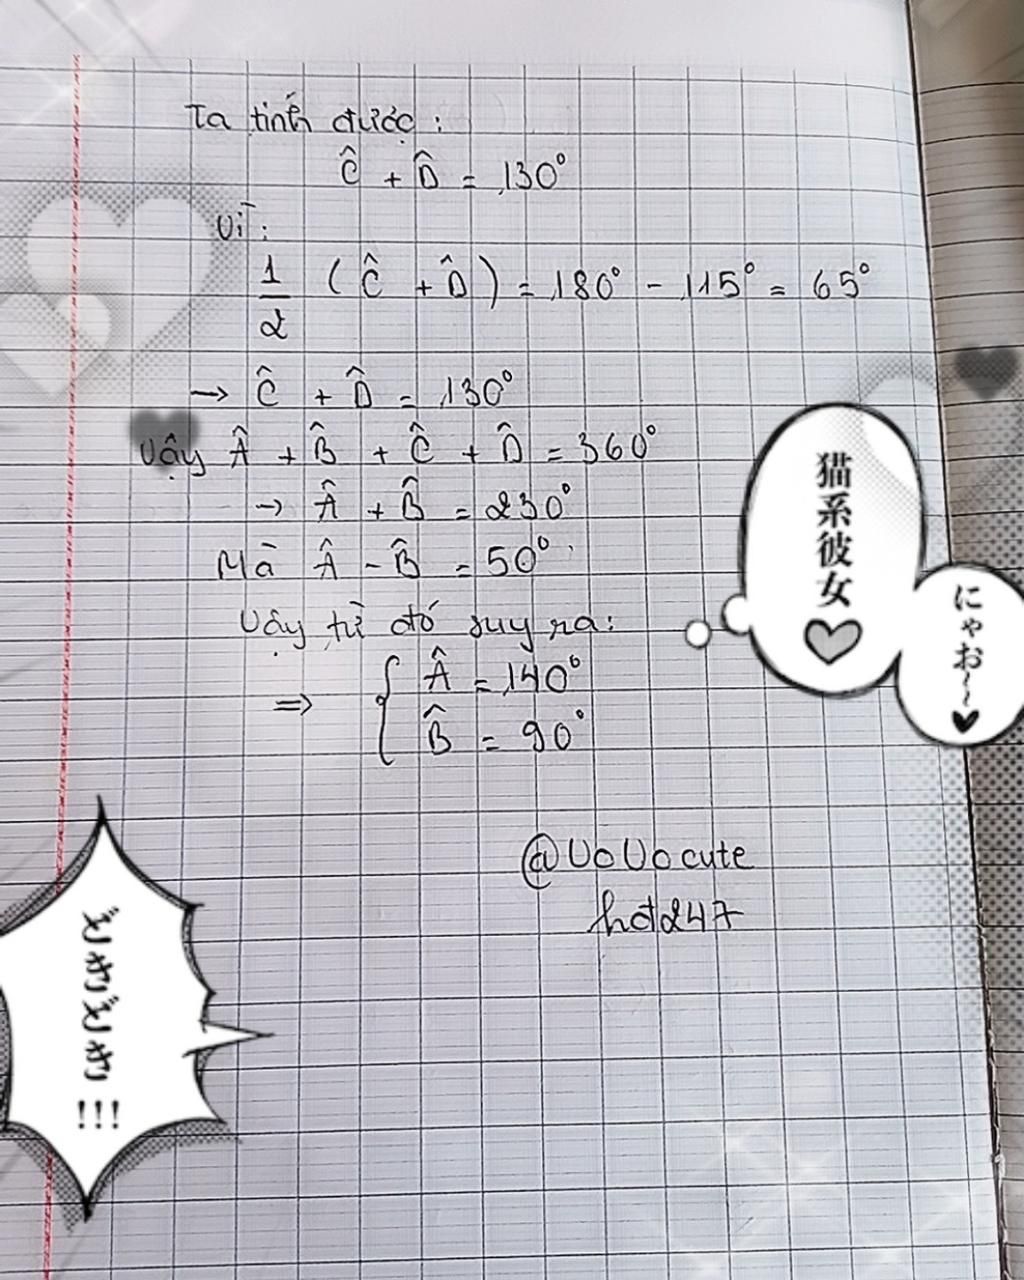 Ta tính được:
Ĉ + D̂ = 130°
Vì:
1/2 (Ĉ + D̂) = 180° - 115° = 65°
→ Ĉ + D̂ = 130°
Vậy Â + B̂ + Ĉ + D̂ = 360°
→ Â + B̂ = 230°
Mà Â - B̂ = 50°
Vậy từ đó suy ra:
⇒ { Â = 140°
B̂ = 90°
@UoUocute
hd247
猫系彼女♡
にゃお~~♥
どきどき!!!